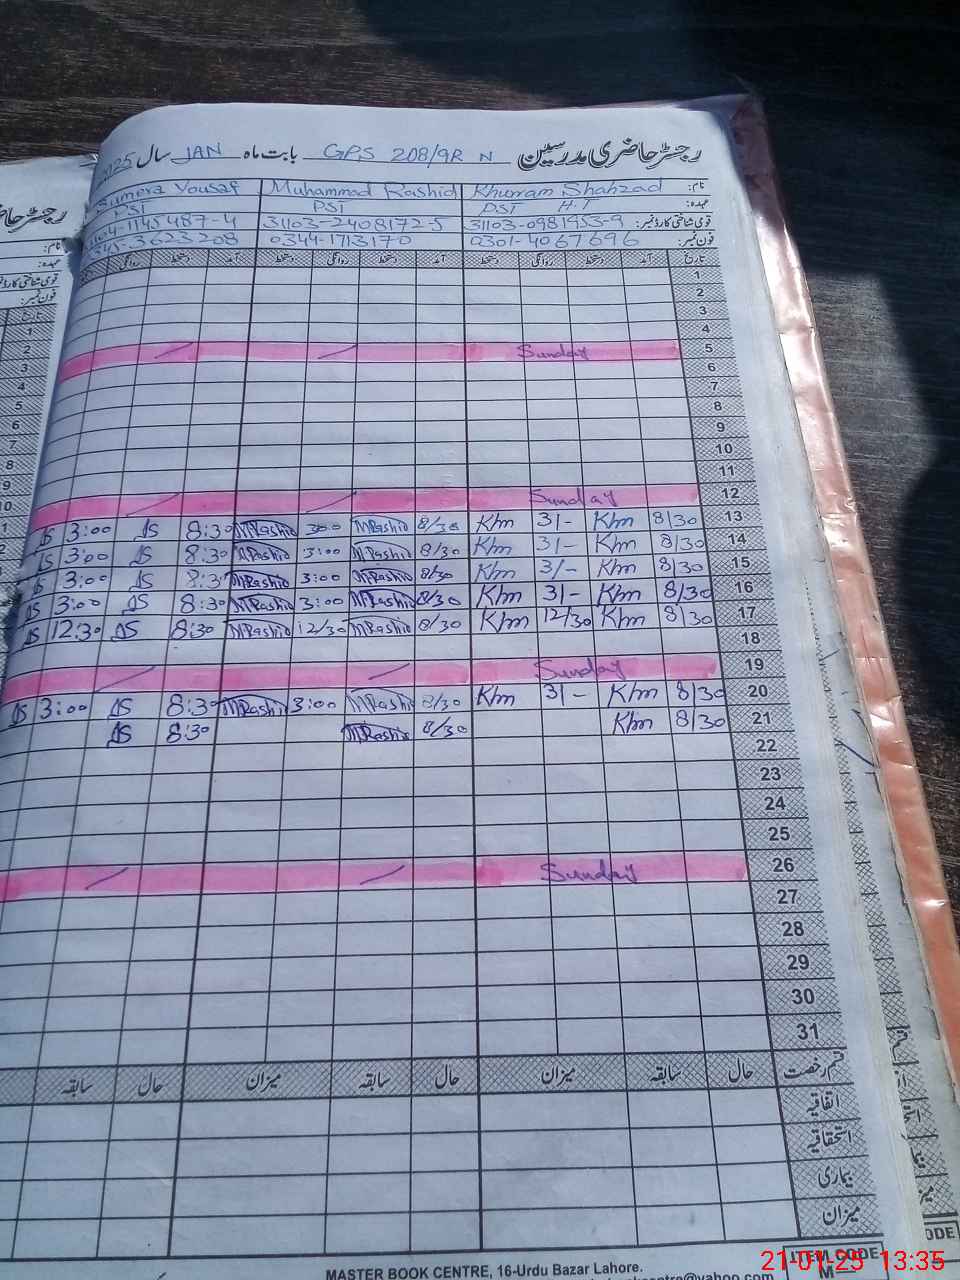 رجسٹر حاضری مدرسین GPS 208/9R N بابت ماہ JAN سال 2025
نام: Khurram Shahzad Muhammad Rashid Sumera Yousaf
عہدہ: PST H.T PST PST
قومی شناختی کارڈ نمبر: 31103-0981953-9 31103-2408172-5 31104-1145487-4
فون نمبر: 0301-4067696 0344-1713170 0345-3623208
تاریخ آمد دستخط روانگی دستخط آمد دستخط روانگی دستخط آمد دستخط روانگی
1
2
3
4
5 Sunday
6
7
8
9
10
11
12 Sunday
13 8/30 Khm 3/- Khm 8/30 MRashid 3:00 MRashid 8:30 AS 3:00 AS
14 8/30 Khm 3/- Khm 8/30 MRashid 3:00 MRashid 8:30 AS 3:00 AS
15 8/30 Khm 3/- Khm 8/30 MRashid 3:00 MRashid 8:3 AS 3:00 AS
16 8/30 Khm 3/- Khm 8/30 MRashid 3:00 MRashid 8:30 AS 3:00 AS
17 8/30 Khm 12/30 Khm 8/30 MRashid 12/30 MRashid 8:30 AS 12:30 AS
18
19 Sunday
20 8/30 Khm 3/- Khm 8/30 MRashid 3:00 MRashid 8:30 AS 3:00 AS
21 8/30 Khm 8/30 MRashid 8:30 AS
22
23
24
25
26 Sunday
27
28
29
30
31
قسم رخصت حال سابقہ میزان حال سابقہ میزان حال سابقہ
اتفاقیہ
استحقاقیہ
بیماری
میزان
ITEM CODE
MASTER BOOK CENTRE, 16-Urdu Bazar Lahore.
21-01-25 13:35